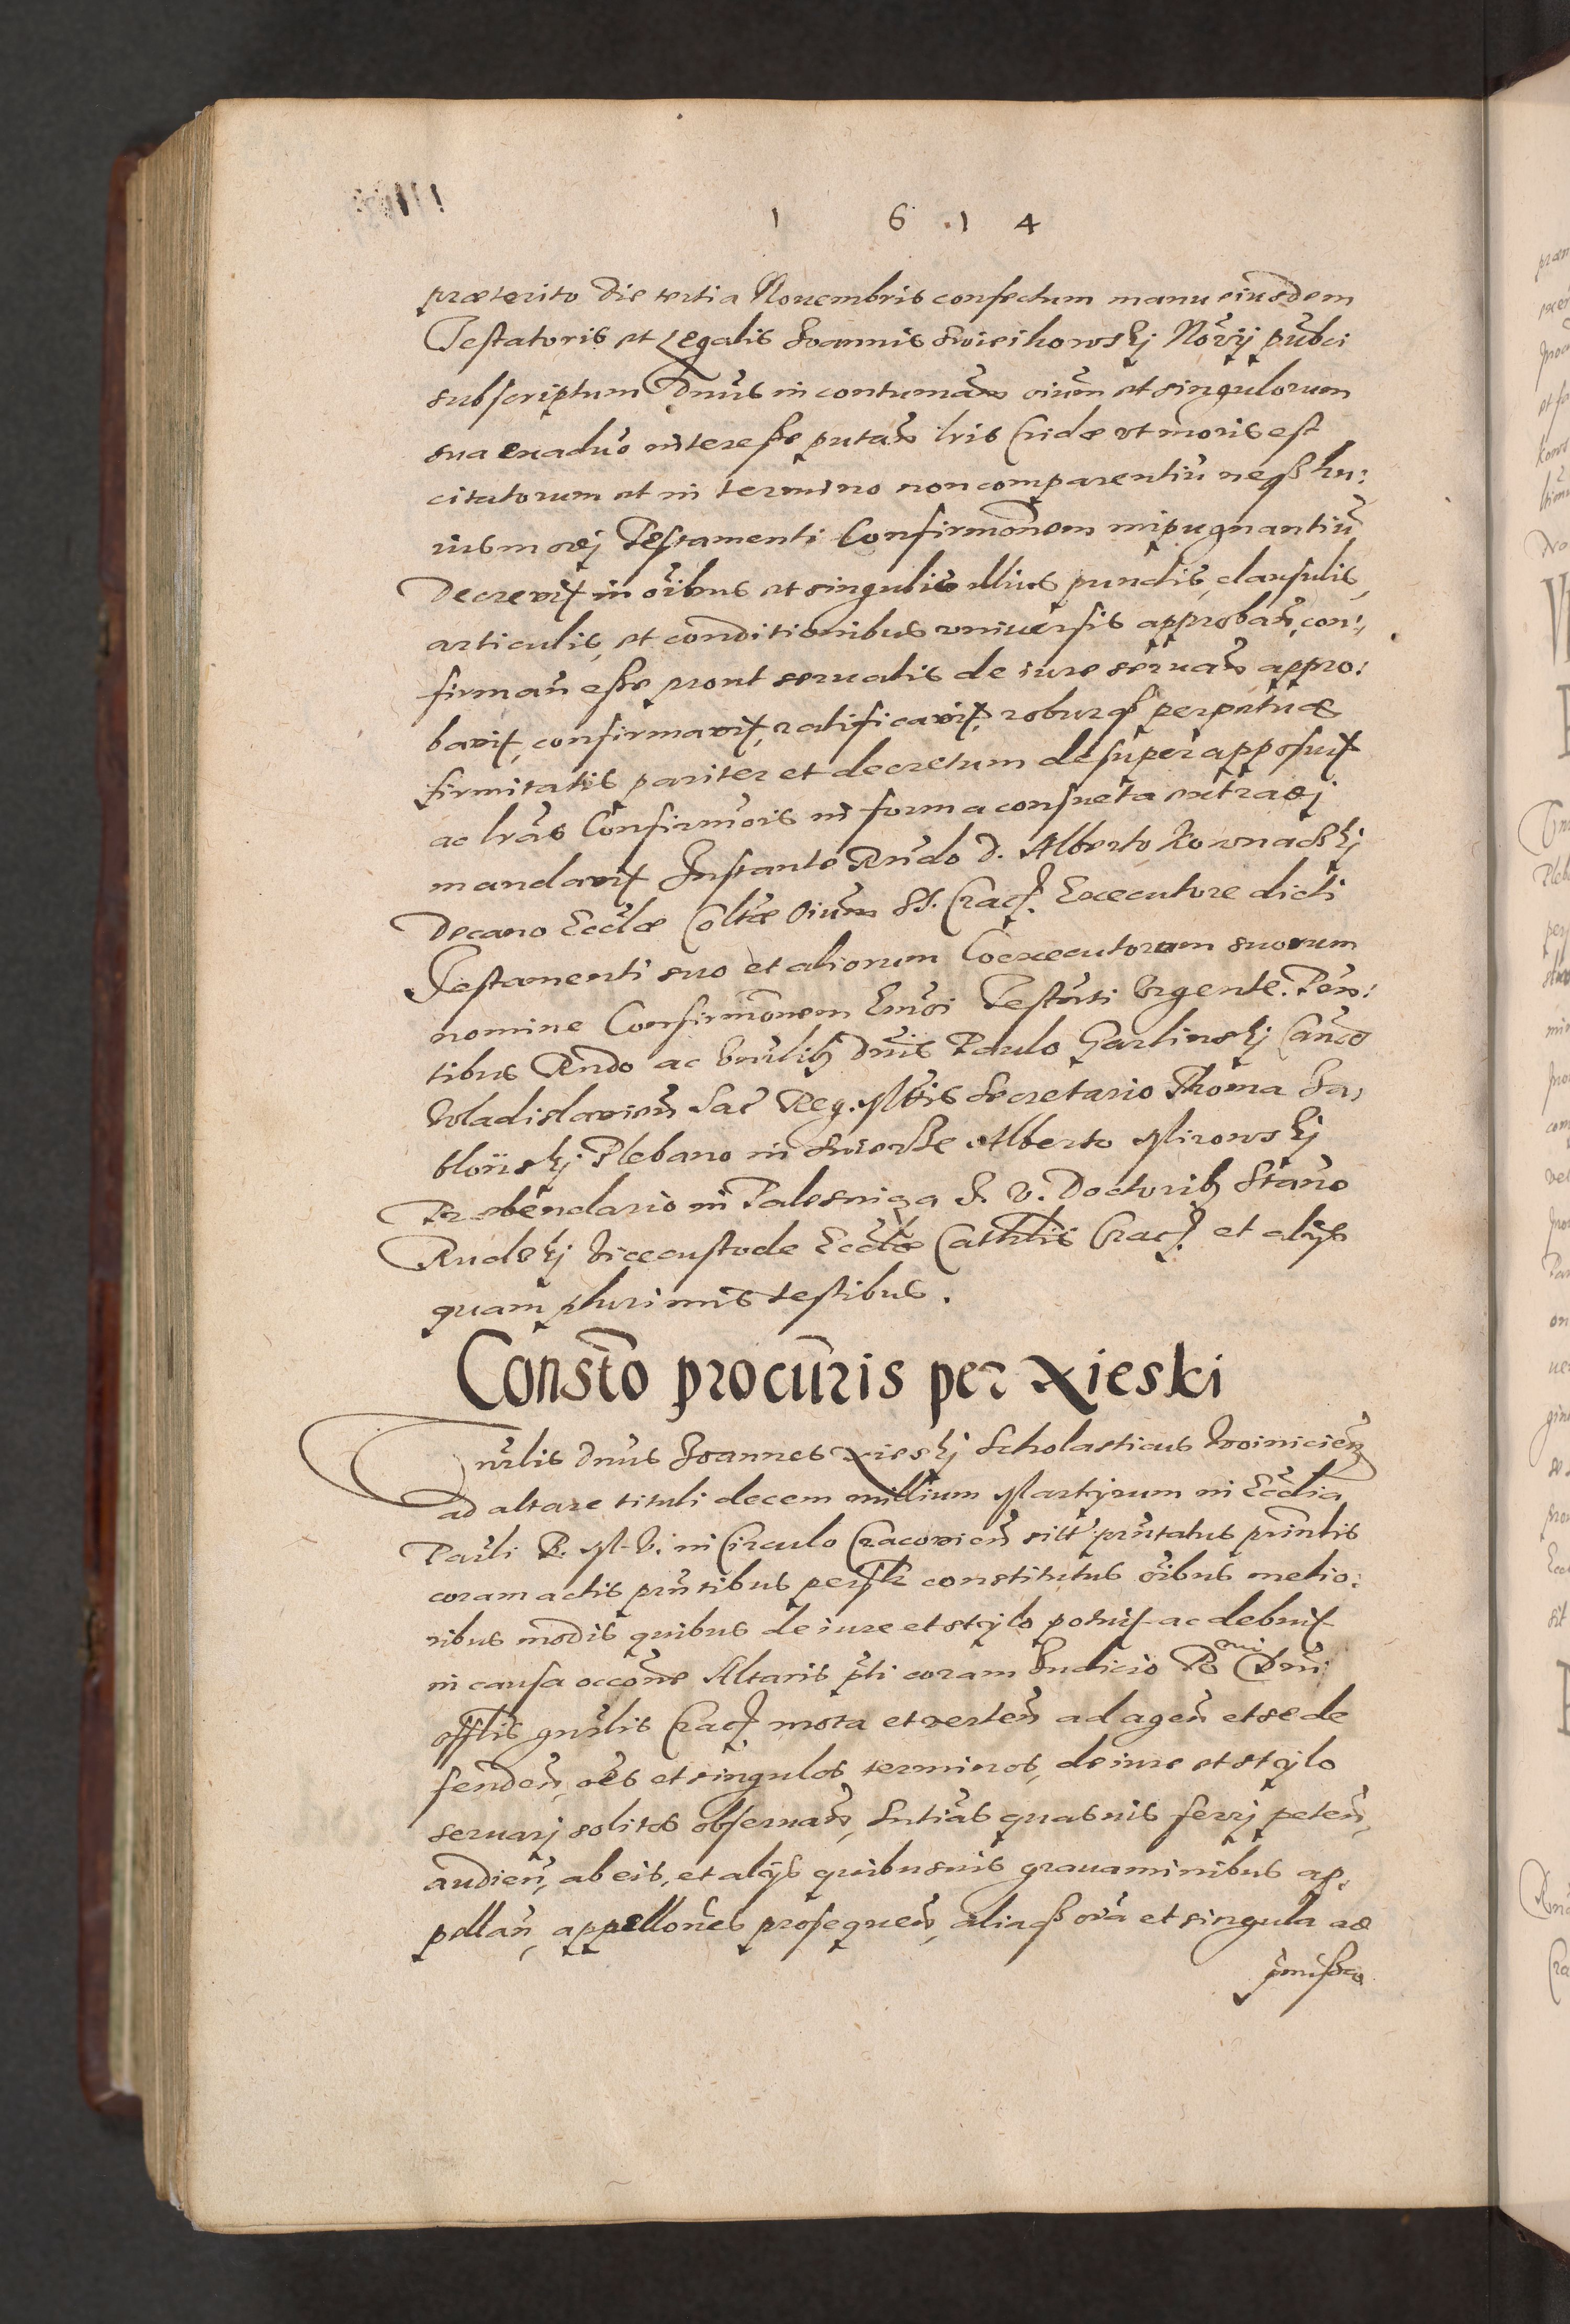 1 6 1 4
præterito die tertia Nouembris confectum manu eiusdem
Testatoris et Legalis Joannis Swieikowskj Nor̃ij pub̃ci
subscriptum Dnũs in contumam̃ oium̃ et singulorum
sua quõ interesse putañ lris Cridæ vt moris est
citatorum et in termino non comparentiũ neq3 hu:
iusmodj Testamenti Confirmõnem impugnantiũ
Decreuit in oĩbus et singulis illius punctis, clausulis,
articulis, et conditionibus vniuersis approban̄, con:
firman̄ esse prout seruatis de iure seruan̄ appro:
bauit, confirmauit, ratificauit, roburq3 perpetuæ
firmitatis pariter et decretum desuper apposuit
ac lrãs Confirmõis in forma consueta extradj
mandauit Instante Rñdo D. Alberto Kownackj
Decano Ecclæ Colltæ Oium̃ SS. Crac. Executore dicti
Testamenti suo et aliorum Coexecutorum suorum
nomine Confirmõnem Testñti Vrgente. Pñ:
tibus Rñdo ac Vnrlib3 Dnĩs Paulo Garlinskj Cano
Wladislauien̄ Sac̃ Reg. Mttis Secretario Thoma Ja,
blonskj Plebano in Alberto Mirowskj
Præbendario in Palesniga J. V. Doctorib3 Stano
Rudskj Vicecustode Ecclæ Cathlis Crac. et alijs
quam plurimis testibus.
Constõ procur̃is per Xieski
Vnrlis Dnũs Joannes Xieskj Scholasticus Woinicien̄
ad altare tituli decem millium Martyrum in Ecclia
Parli B. M. V. in Circulo Cracouien̄ sitt̃ pñtatus prinlis
coram actis pñtibus personlr constitutus oĩbus melio:
ribus modis quibus de iure et stÿlo potuit ac debuit
in causa occõne Altaris pti coram Judicio Rmi Dni
offlis gnrlis Crac. mota et verten̄ ad agen̄ et se de
fenden̄, oẽs et singulos terminos, de iure et stÿlo
seruarj solitos obseruan̄, Sntiãs quasuis ferrj peten̄,
audien̄, ab eis, et alijs quibusuis grauaminibus ap,
pellan̄, appellões prosequen̄, aliaq3 oĩa et singula ad
pmissa